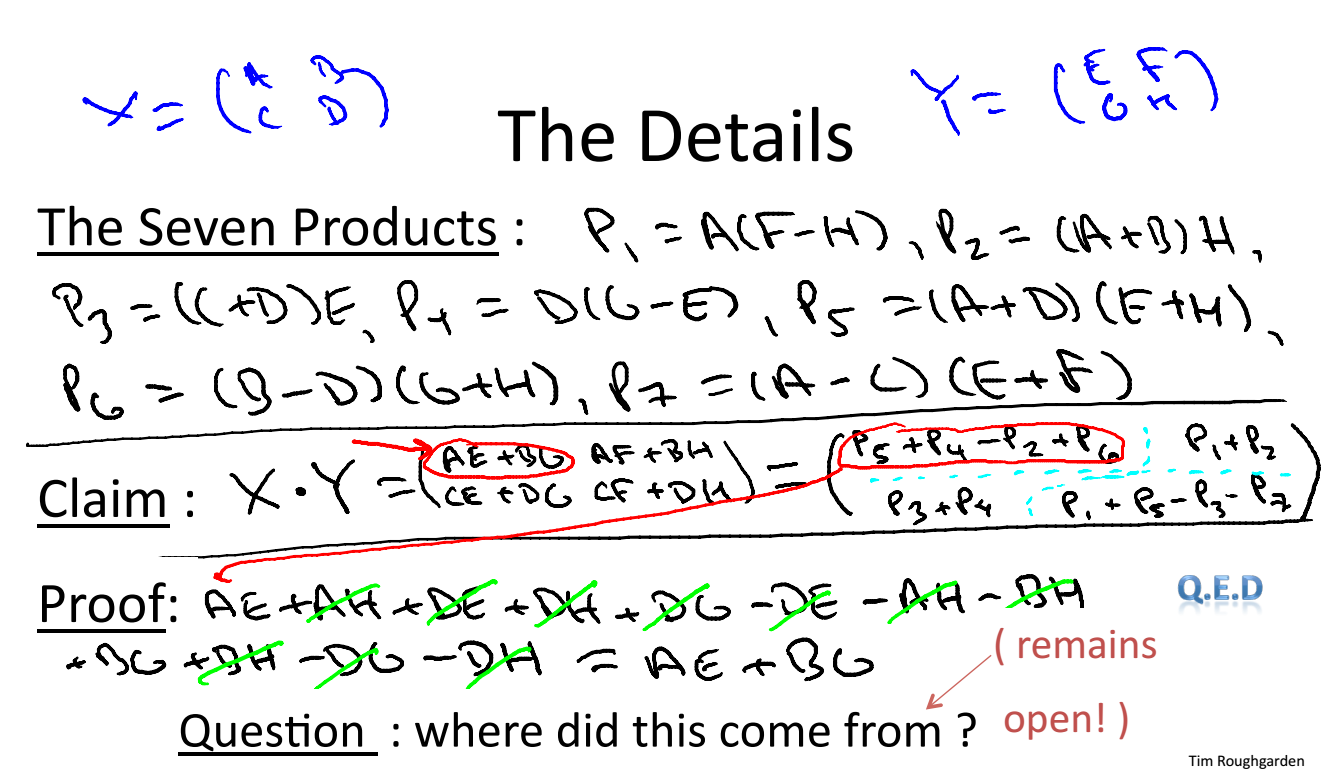 X = (A B
C D)
Y = (E F
G H)
The Details
The Seven Products : P₁ = A(F-H), P₂ = (A+B)H,
P₃ = (C+D)E, P₄ = D(G-E), P₅ = (A+D)(E+H),
P₆ = (B-D)(G+H), P₇ = (A-C)(E+F)
Claim : X·Y = (AE+BG AF+BH
CE+DG CF+DH) = (P₅+P₄-P₂+P₆ P₁+P₂
P₃+P₄ P₁+P₅-P₃-P₇)
Proof: AE+AH+DE+DH+DG-DE-AH-BH
+BG+BH-DG-DH = AE+BG
Q.E.D
( remains
open! )
Question : where did this come from ?
Tim Roughgarden